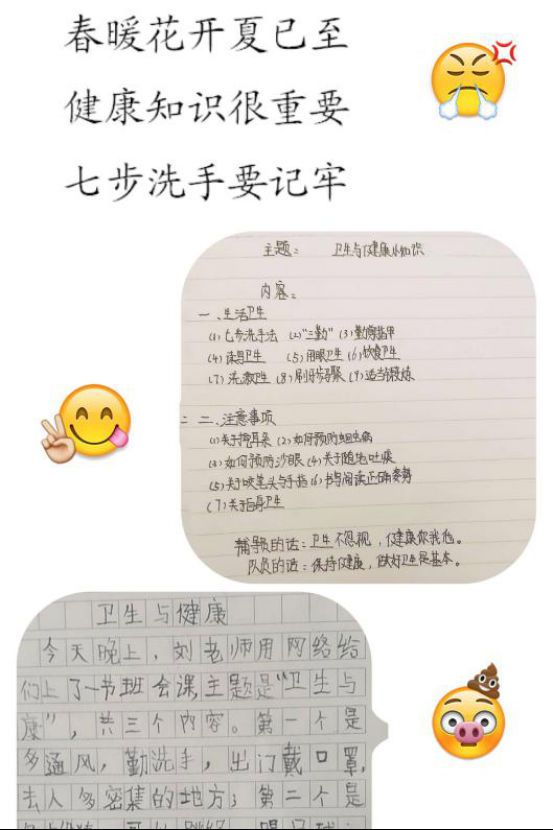 春暖花开夏已至
健康知识很重要
七步洗手要记牢
主题： 卫生与健康小知识
内容：
一、生活卫生
(1)七步洗手法 (2)"三勤" (3)勤剪指甲
(4)床铺卫生 (5)用眼卫生 (6)饮食卫生
(7)洗漱卫生 (8)刷牙步骤 (9)适当锻炼
二、注意事项
(1)关于挖耳朵 (2)如何预防蛔虫病
(3)如何预防沙眼 (4)关于随地吐痰
(5)关于咬笔头与手指 (6)书写阅读正确姿势
(7)关于自身卫生
辅导员的话：卫生不忽视，健康你我他。
队员的话：保持健康，做好卫生是基本。
卫生与健康
今天晚上，刘老师用网络给
们上了一节班会课，主题是"卫生与
康"，共三个内容。第一个是
多通风，勤洗手，出门戴口罩，
去人多密集的地方；第二个是